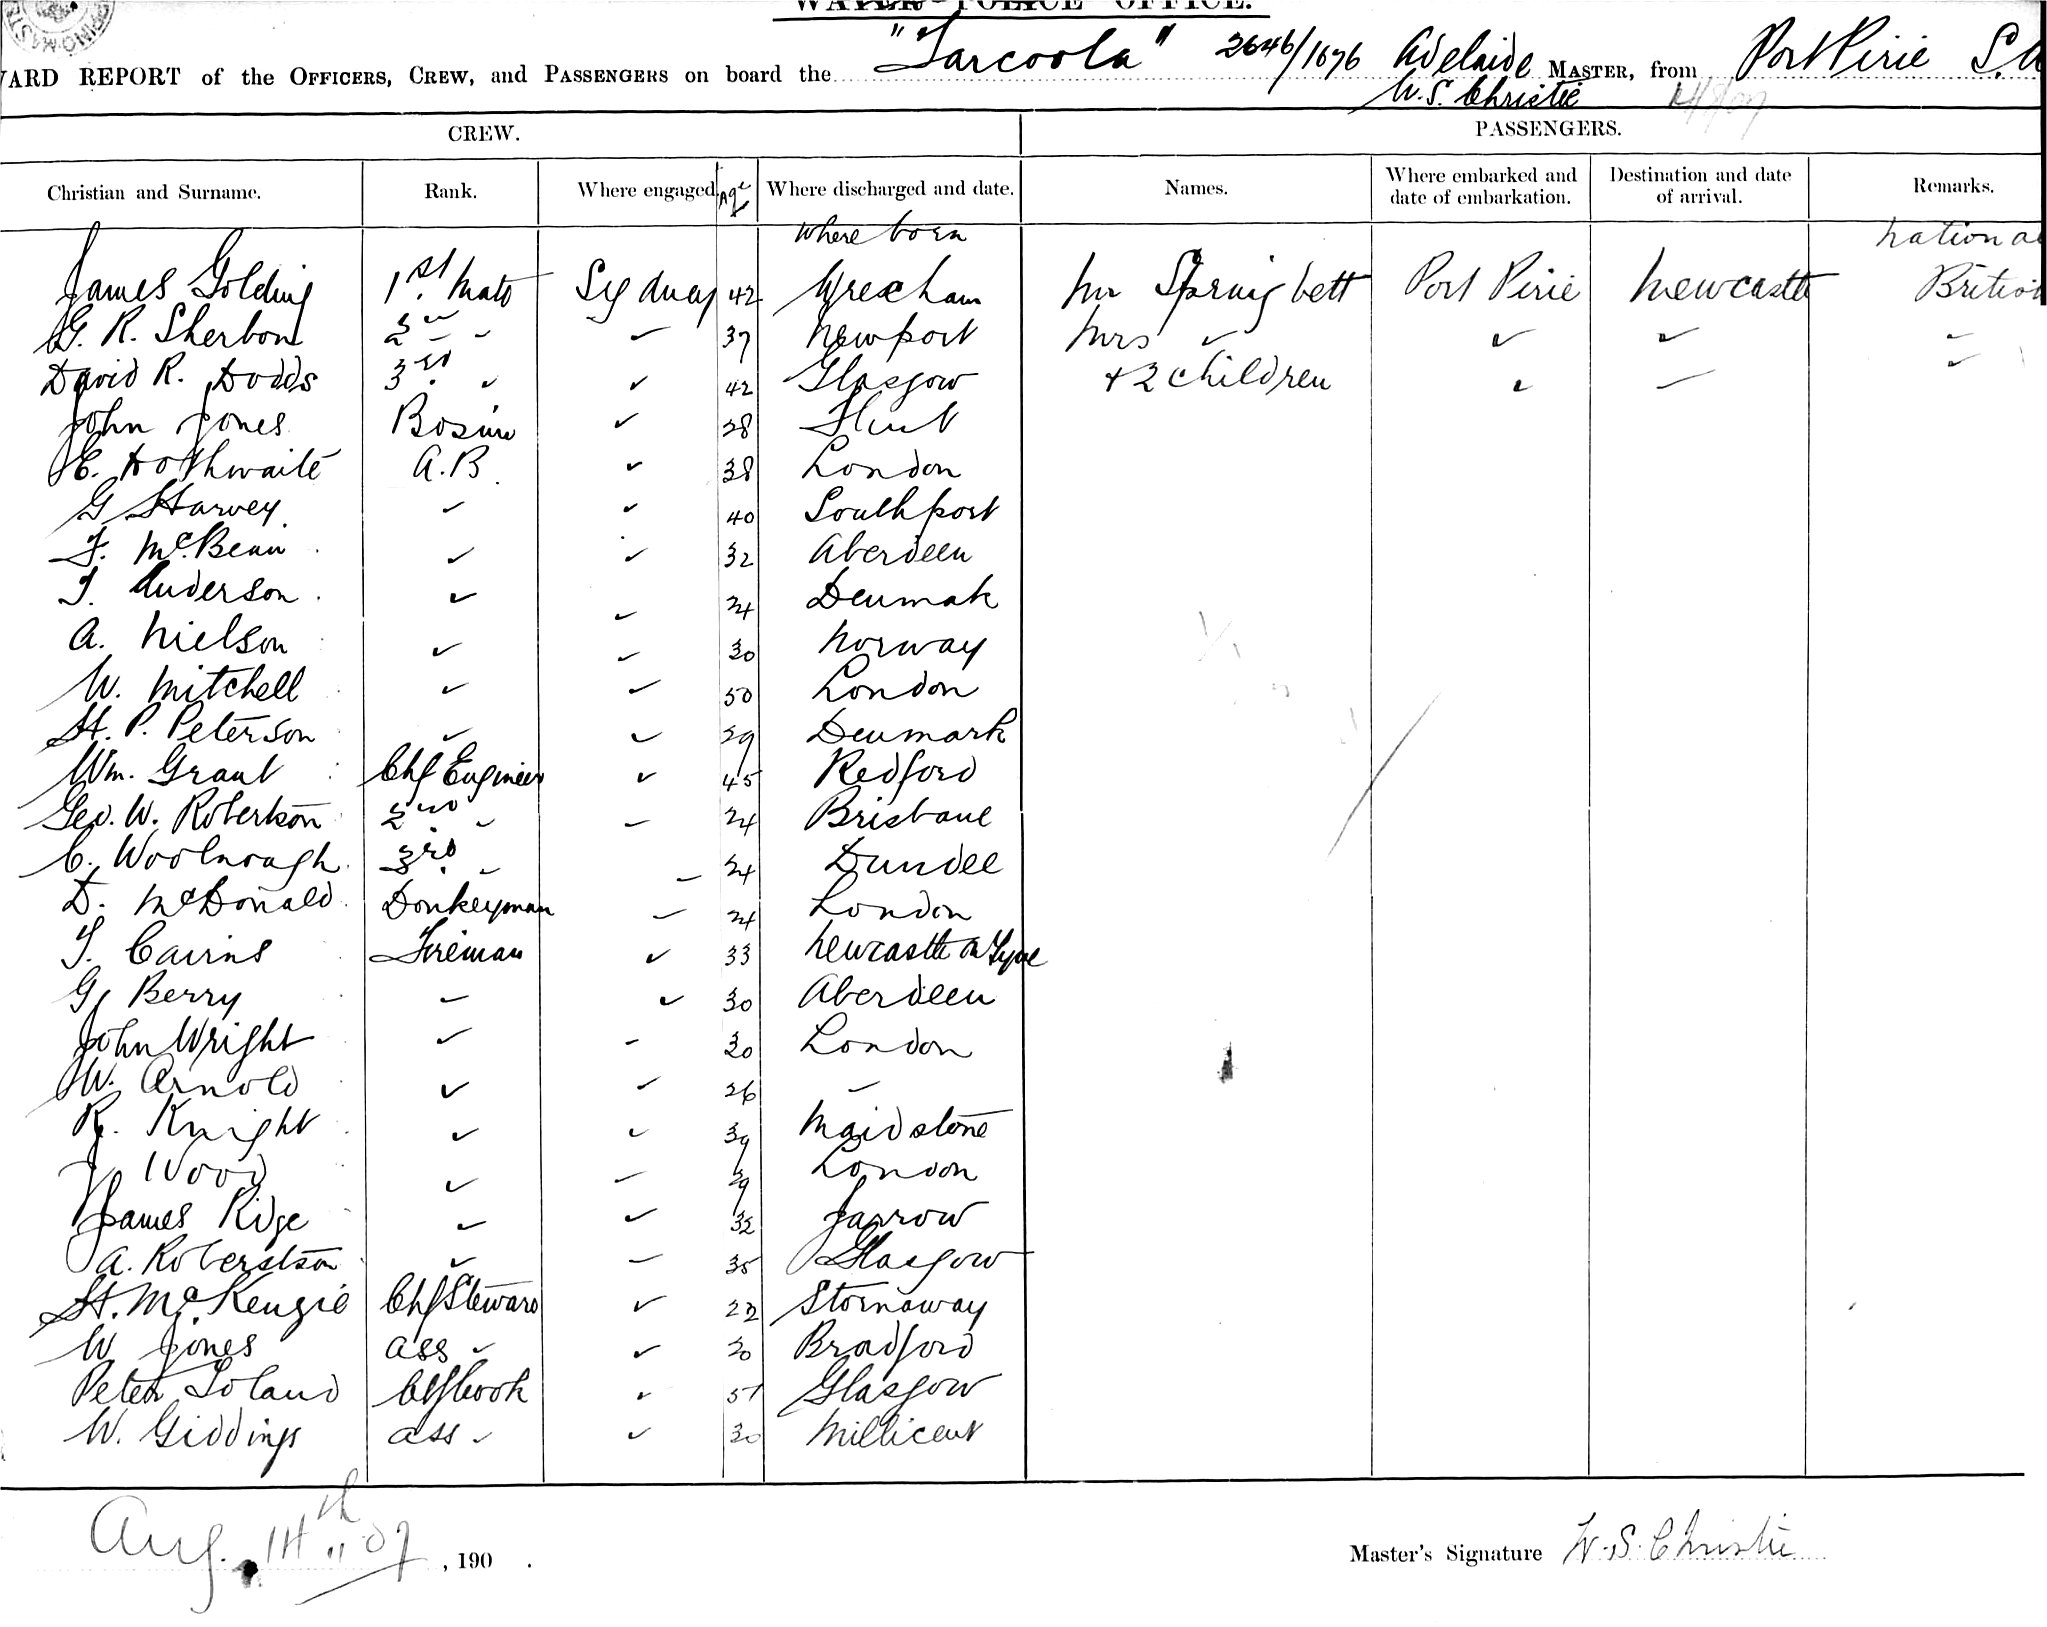 WATER POLICE OFFICE.
WARD REPORT of the OFFICERS, CREW, and PASSENGERS on board the "Tarcoola" 2646/1676 Adelaide W. S. Christie MASTER, from Port Pirie S.A
14/8/07
CREW. PASSENGERS.
Christian and Surname. Rank. Where engaged Age Where discharged and date. Names. Where embarked and date of embarkation. Destination and date of arrival. Remarks.
Where born National
James Golding 1st. Mate Sydney 42 Wrexham Mr Springbett Port Pirie Newcastle British
G. R. Sherbon 2nd " ✓ 37 Newport Mrs ✓ ✓ ✓ ✓
David R. Dodds 3rd. ✓ ✓ 42 Glasgow + 2 Children ✓ ✓ ✓
John Jones Bosun ✓ 28 Flint
E. Hothwaite A.B. ✓ 38 London
G Harvey ✓ ✓ 40 Southport
F. McBean ✓ ✓ 32 Aberdeen
T. Anderson ✓ ✓ 24 Denmak
A. Nielson ✓ ✓ 30 Norway
W. Mitchell ✓ ✓ 50 London
H. P. Peterson ✓ ✓ 29 Denmark
Wm. Grant Chf Engineer ✓ 45 Redford
Geo. W. Robertson 2nd ✓ ✓ 24 Brisbane
C. Woolnough 3rd. ✓ ✓ 24 Dundee
D. McDonald Donkeyman ✓ 24 London
T. Cairns Fireman ✓ 33 Newcastle on Tyne
G. Berry ✓ ✓ 30 Aberdeen
John Wright ✓ ✓ 30 London
W. Arnold ✓ ✓ 26 ✓
R. Knight ✓ ✓ 39 Maidstone
J. Wood ✓ ✓ 39 London
James Ridge ✓ ✓ 32 Jarrow
A. Roberstson ✓ ✓ 35 Glasgow
H. McKenzie Chf Steward ✓ 22 Stornaway
W Jones Ass ✓ ✓ 30 Bradford
Peter Toland Chf Cook ✓ 51 Glasgow
W. Giddings Ass ✓ ✓ 30 Millicent
Aug. 14th " 07, 190 .
Master's Signature W. S. Christie